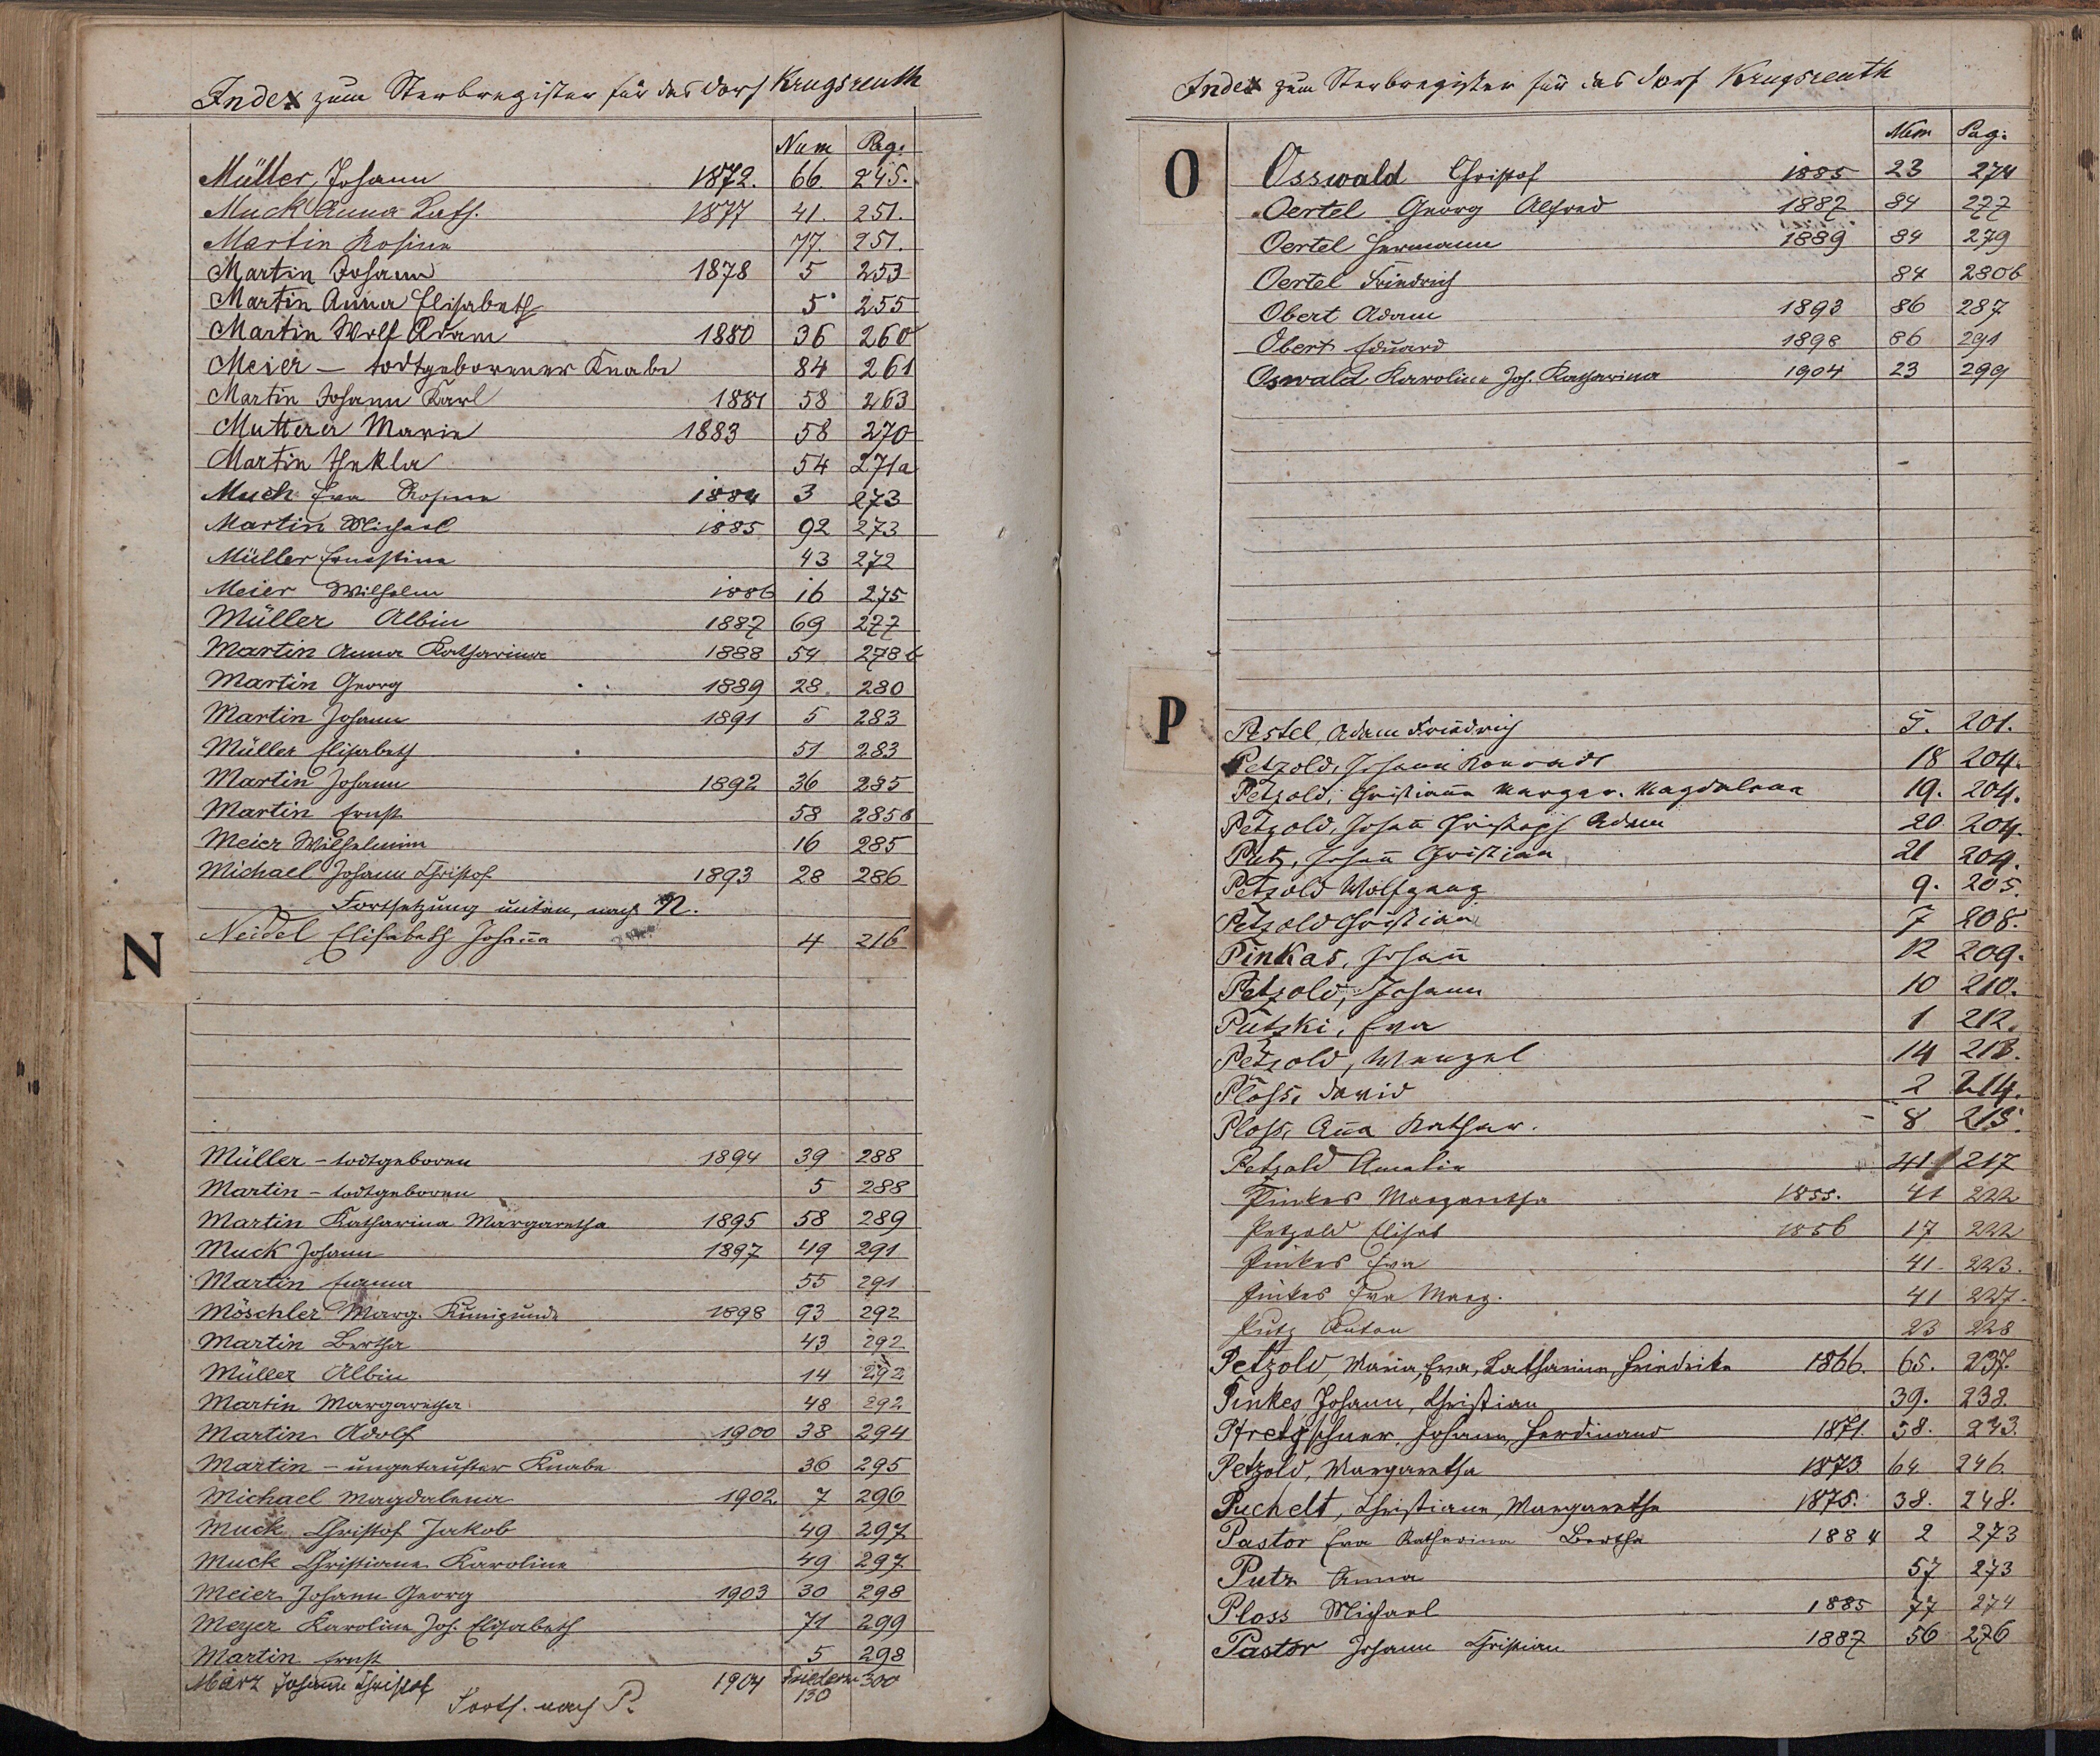 Index zum Sterbregister für das Dorf Krugsreuth
Num Pag.
Müller, Johann 1872. 66. 245.
Muck Anna Kath. 1877 41. 251.
Martin Rosina 77. 251.
Martin Johann 1878 5 253
Martin Anna Elisabeth 5 255
Martin Wolf Adam 1880 36 260
Meier – todtgeborener Knabe 84 261
Martin Johann Karl 1881 58 263
Mutterer Marie 1883 58 270
Martin Thekla 54 271a
Much Eva Rosina 1884 3 273
Martin Michael 1885 92 273
Müller Ernestina 43 272
Meier Wilhelm 1886 16 275
Müller Albin 1887 69 277
Martin Anna Katharina 1888 54 278b
Martin Georg 1889 28 280
Martin Johann 1891 5 283
Müller Elisabeth 51 283
Martin Johann 1892 36 285
Martin Ernst 58 285b
Meier Wilhelmine 16 285
Michael Johann Christof 1893 28 286
Fortsetzung unten, nach N.
N
Neidel Elisabeth Johaña 4 216
Müller – todtgeboren 1894 39 288
Martin – todtgeboren 5 288
Martin Katharina Margaretha 1895 58 289
Muck Johann 1897 49 291
Martin Emma 55 291
Möschler Marg. Kunigunde 1898 93 292
Martin Bertha 43 292
Müller Albin 14 292
Martin Margaretha 48 292
Martin Adolf 1900 38 294
Martin – ungetaufter Knabe 36 295
Michael Magdalena 1902 7 296
Muck Christof Jakob 49 297
Muck Christiane Karoline 49 297
Meier Johann Georg 1903 30 298
Meyer Karolina Joh. Elisabeth 71 299
Martin Ernst 5 298
März Johann Christof 1904 130 300
Forts. nach P.
Index zum Sterbregister für das Dorf Krugsreuth
Num Pag.
O
Osswald Christof 1885 23 274
Oertel Georg Alfred 1887 84 277
Oertel Hermann 1889 84 279
Oertel Friedrich 84 280b
Obert Adam 1893 86 287
Obert Eduard 1898 86 291
Oswald Karolina Joh. Katharina 1904 23 299
P
Pestel, Adam Friedrich 5. 201.
Petzold, Johann Konradt 18 204.
Petzold, Christiana Margar. Magdalena 19. 204.
Petzold, Johañ Christoph Adam 20 204.
Putz, Johañ Christian 21 204.
Petzold Wolfgang 9. 205.
Petzold Christian 7 208.
Pinkas, Johañ 12 209.
Petzold, Johann 10 210.
Putzki, Eva 1 212.
Petzold, Wenzel 14 213.
Ploss, David 2 214.
Ploss, Aña Kathar. 8 215.
Petzold Amalia 41 217
Pinkes Margaretha 1855. 41 222
Petzold Elisab 1856 17 222
Pinkes Eva 41 223.
Pinkes Eva Marg. 41 227.
Putz Anton 23 228
Petzold, Maria, Eva, Katharina, Friedrike 1866. 65. 237.
Pinkes Johann, Christian 39. 238.
Pfretzschner, Johann, Ferdinand 1871. 38. 243.
Petzold, Margaretha 1873 64 246.
Puchelt, Christiane, Margaretha 1875. 38. 248.
Pastor Eva Katharina Bertha 1884 2 273
Putz Anna 57 273
Ploss Michael 1885 77 274
Pastor Johann Christian 1887 56 276